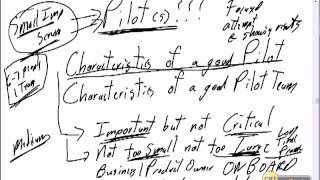 Small Imp
Scrum
Pilot(s)???
Focused
attempt
@ showing results
Characteristics of a good Pilot
Characteristics of a good Pilot Team
1 Team
Medium
→ Important but not Critical
→ Not too Small not too Large
Business/Product Owner ON BOARD